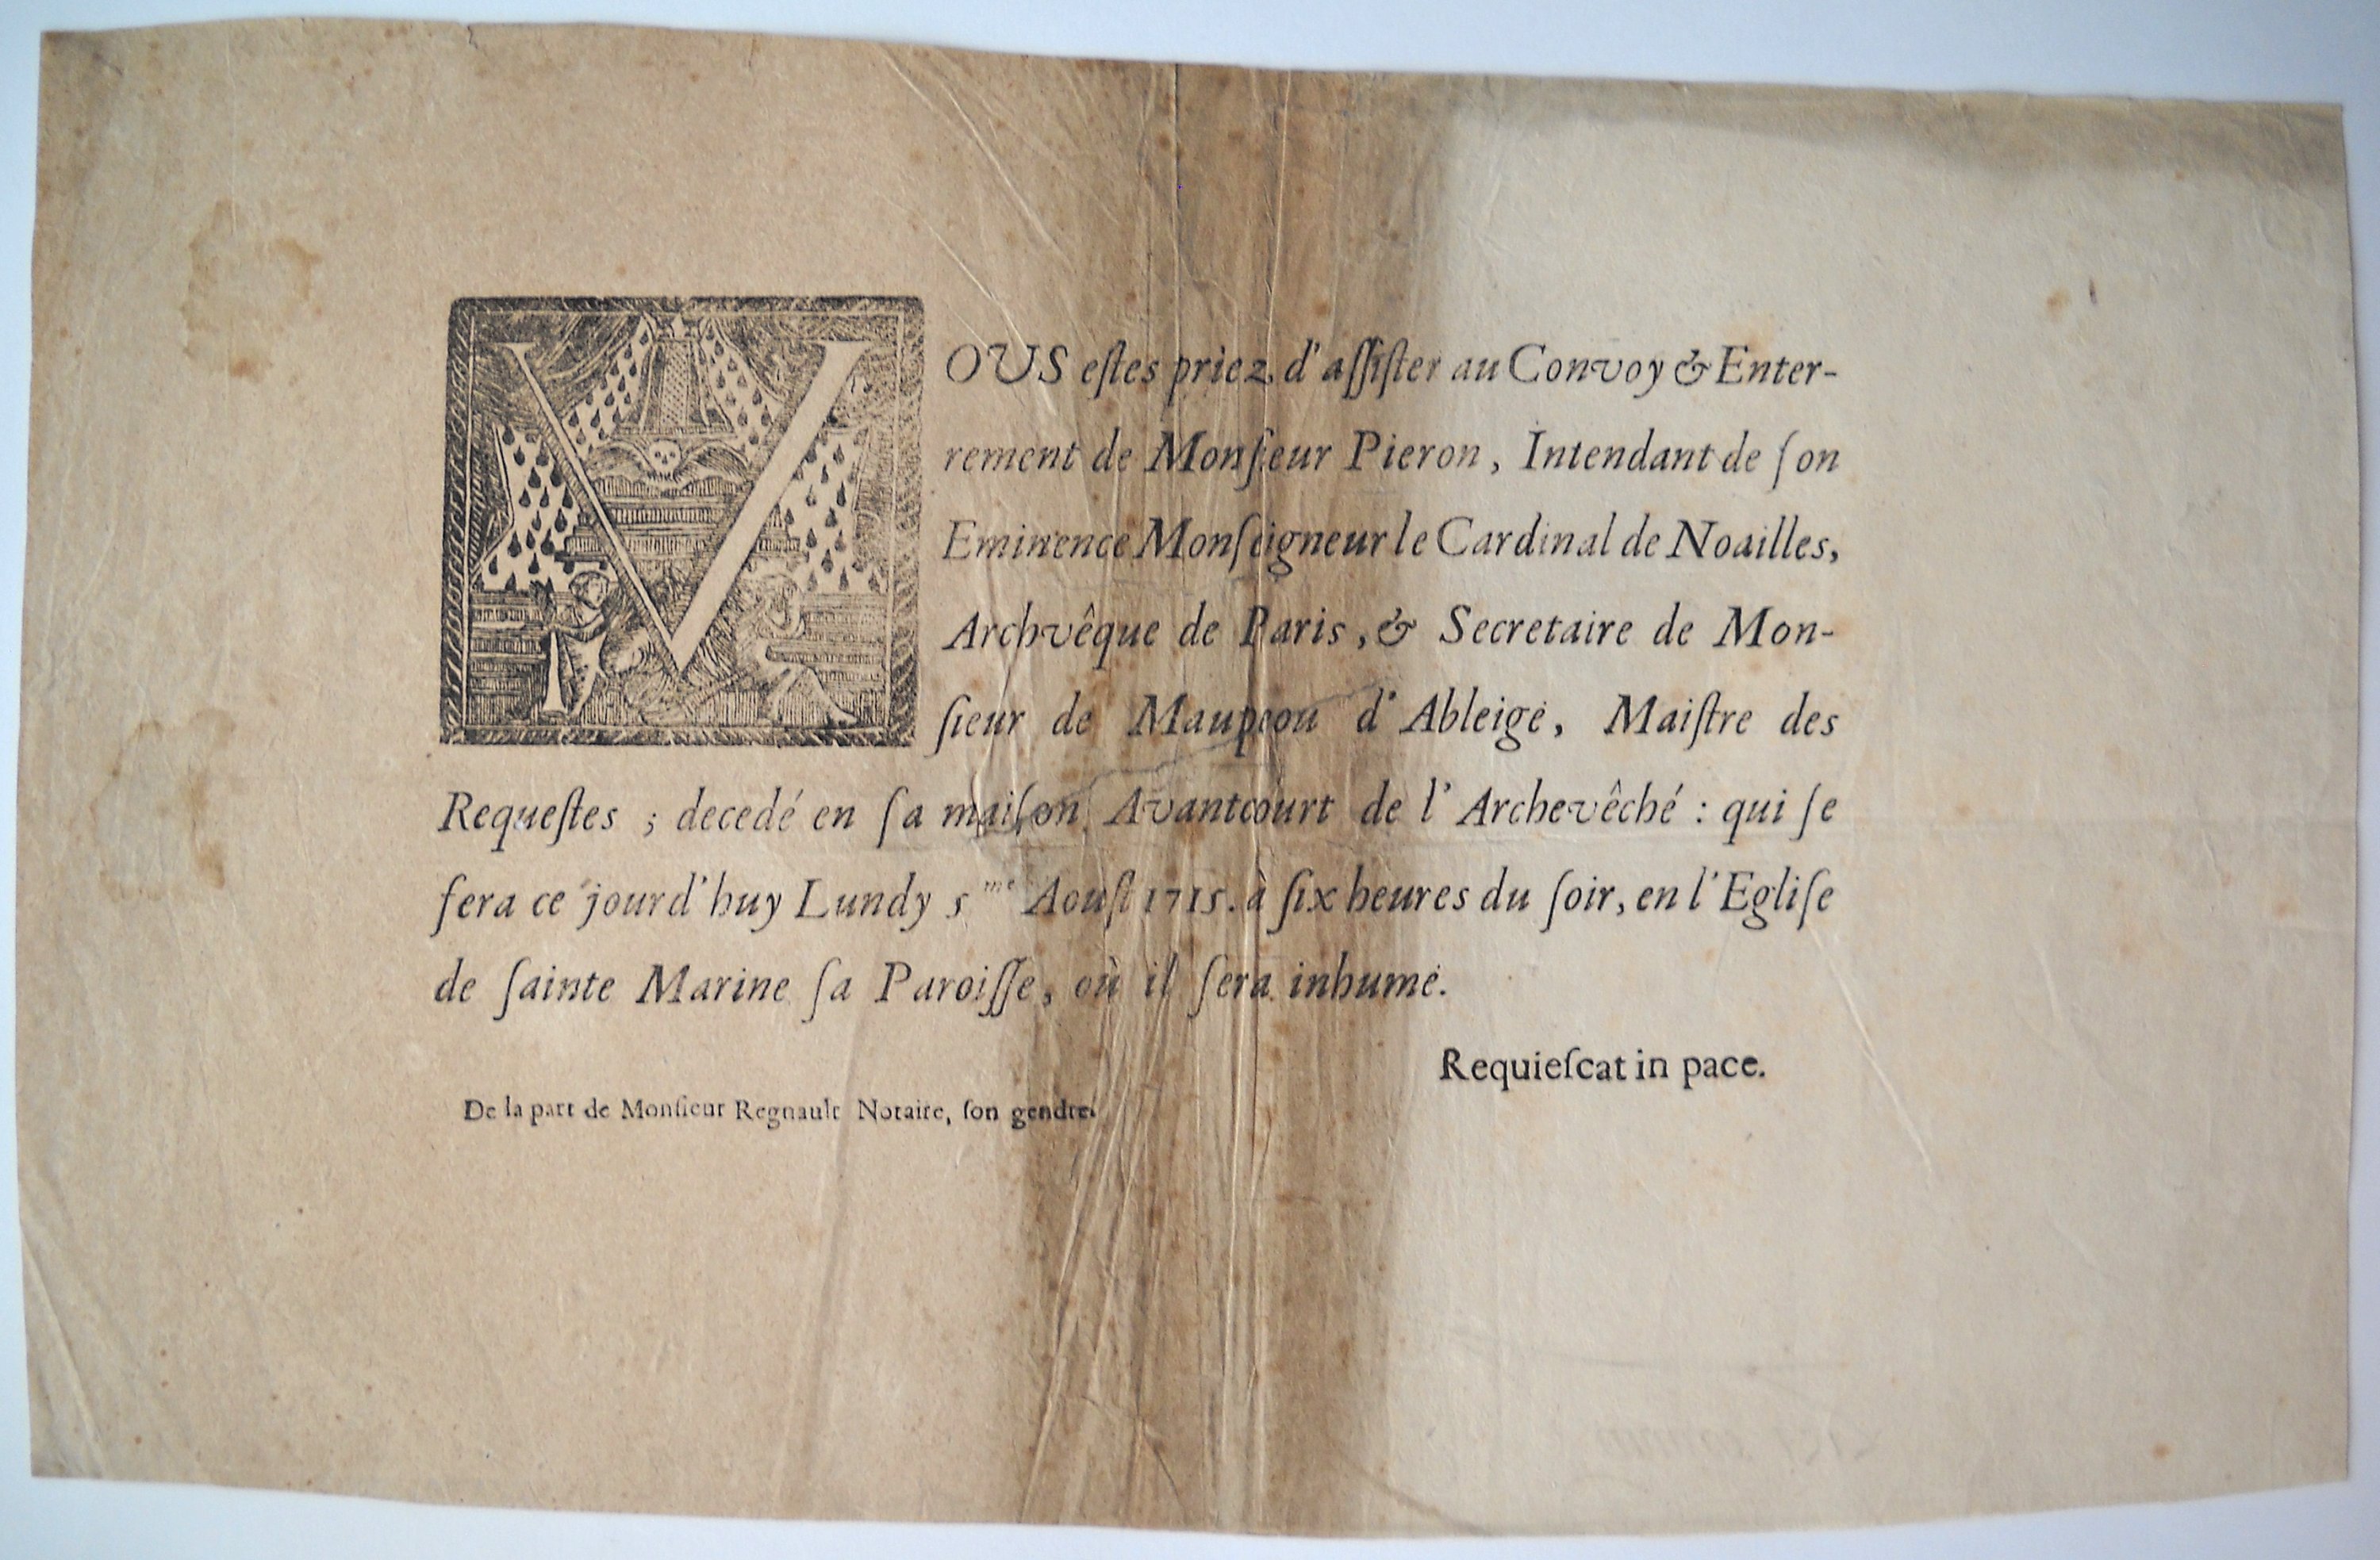 VOUS eſtes priez d'aſſiſter au Convoy & Enter-
rement de Monſieur Pieron, Intendant de ſon
Eminence Monſeigneur le Cardinal de Noailles,
Archvêque de Paris, & Secretaire de Mon-
ſieur de Maupeou d'Ableigé, Maiſtre des
Requeſtes ; decedé en ſa maiſon Avantcourt de l'Archevêché : qui ſe
fera ce jourd'huy Lundy 5me Aouſt 1715. à ſix heures du ſoir, en l'Egliſe
de ſainte Marine ſa Paroiſſe, où il ſera inhumé.
Requieſcat in pace.
De la part de Monſieur Regnault Notaire, ſon gendre.